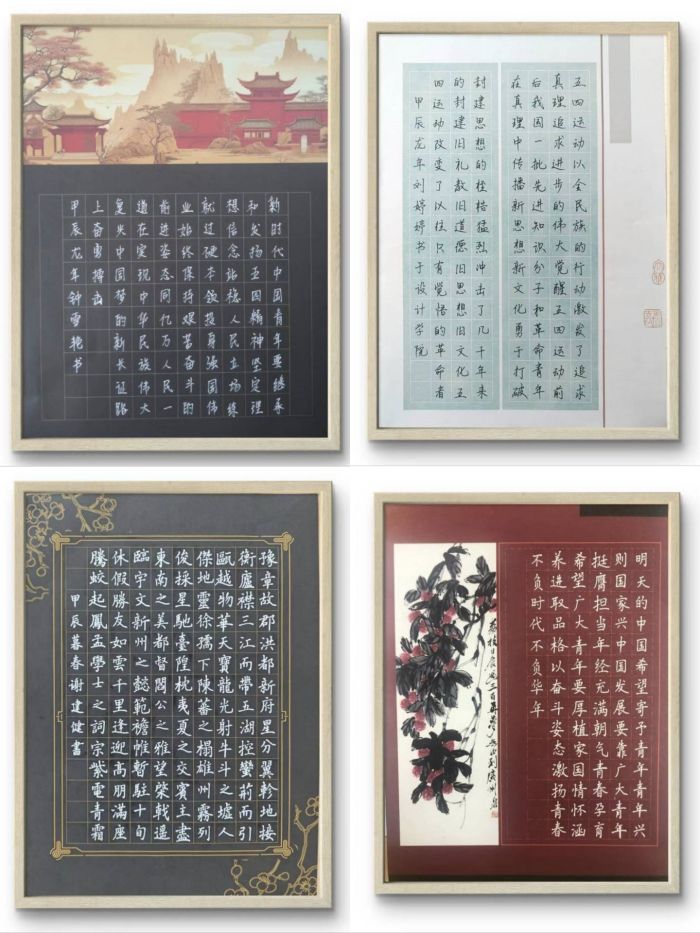 新时代中国青年要继承
和发扬五四精神坚定理
想信念站稳人民立场练
就过硬本领投身强国伟
业始终保持艰苦奋斗的
前进姿态同亿万人民一
道在实现中华民族伟大
复兴中国梦的新长征路
上奋勇搏击
甲辰龙年钟雪艳书
五四运动以全民族的行动激发了追求
真理追求进步的伟大觉醒五四运动前
后我国一批先进知识分子和革命青年
在真理中传播新思想新文化勇于打破
封建思想的桎梏猛烈冲击了几千年来
的封建旧礼教旧道德旧思想旧文化五
四运动改变了以往只有觉悟的革命者
甲辰龙年刘婷婷书于设计学院
豫章故郡洪都新府星分翼軫地接
衡廬襟三江而帶五湖控蠻荊而引
甌越物華天寶龍光射牛斗之墟人
傑地靈徐孺下陳蕃之榻雄州霧列
俊採星馳臺隍枕夷夏之交賓主盡
東南之美都督閻公之雅望棨戟遥
臨宇文新州之懿範襜帷暫駐十旬
休假勝友如雲千里逢迎高朋滿座
騰蛟起鳳孟學士之詞宗紫電青霜
甲辰暮春謝建健書
明天的中国希望寄予青年青年兴
则国家兴中国发展要靠广大青年
挺膺担当年轻充满朝气青春孕育
希望广大青年要厚植家国情怀涵
养进取品格以奋斗姿态激扬青春
不负时代不负华年